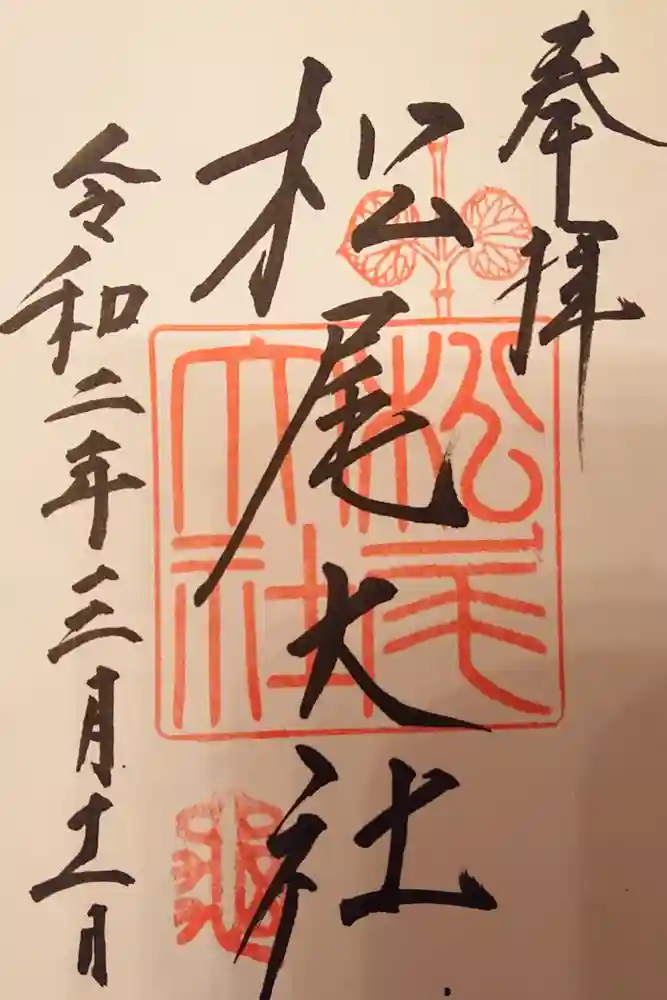 奉拝
松尾大社
松尾
大社
令和二年三月十一日